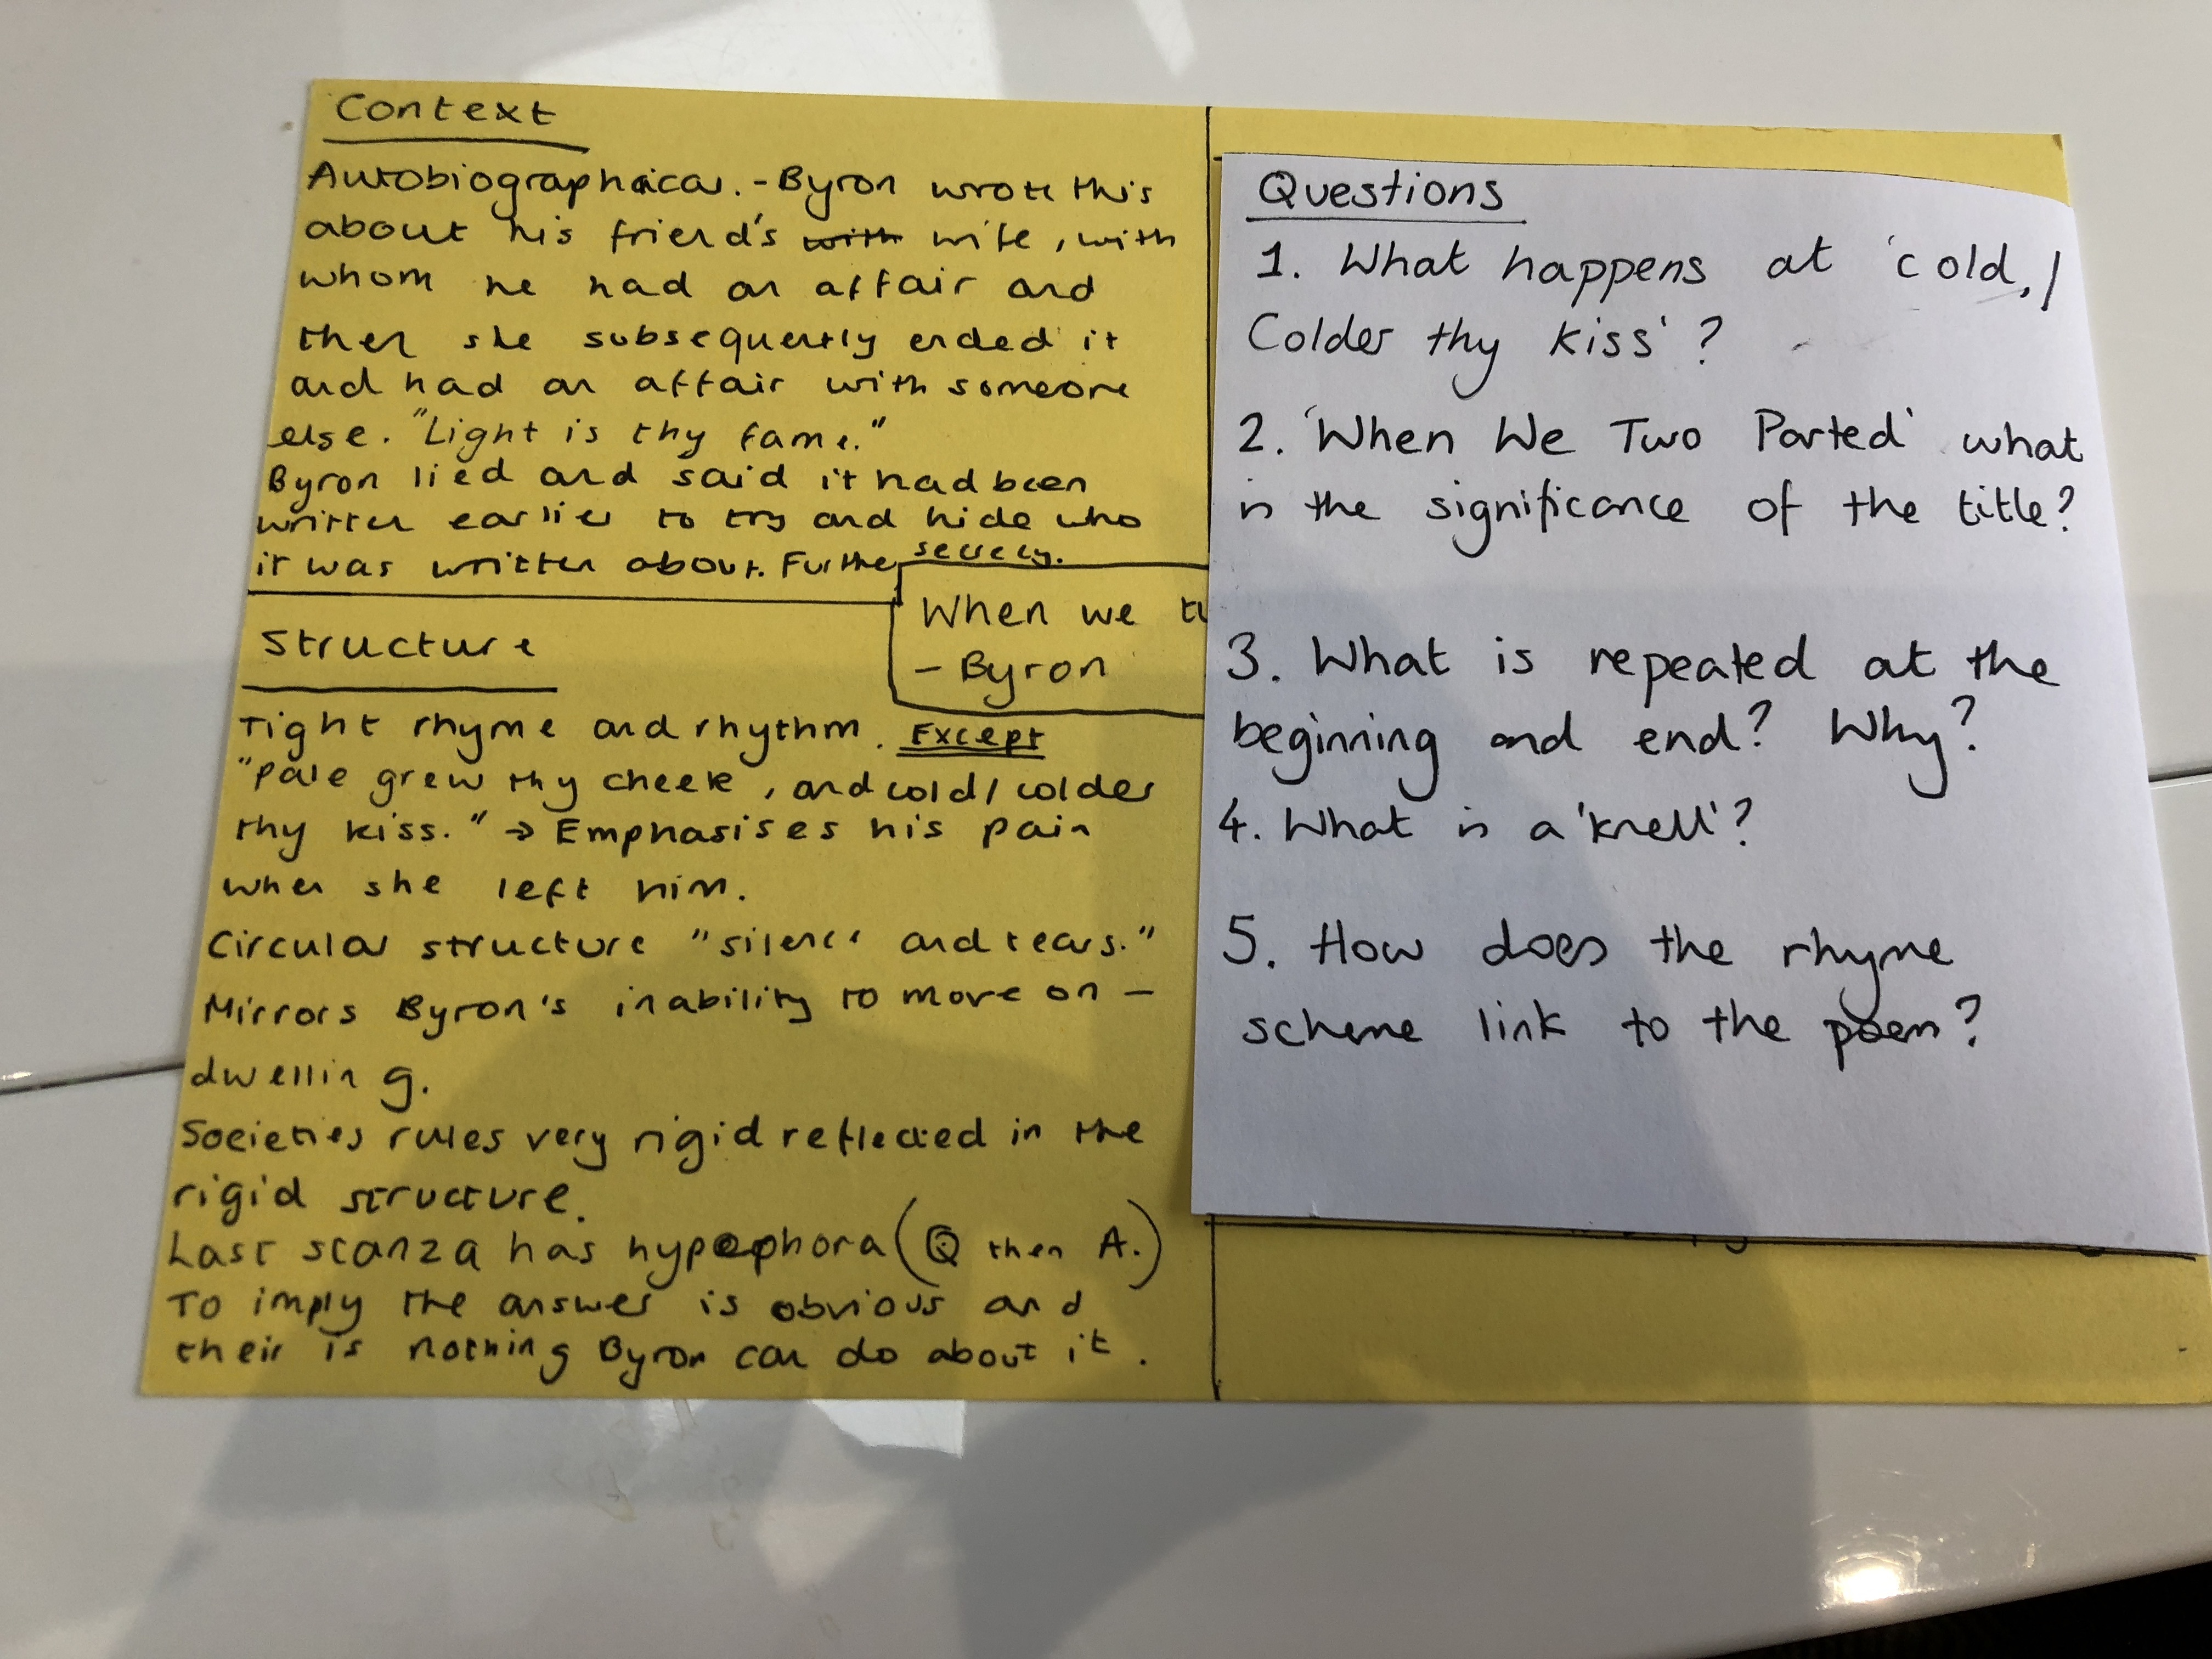 Context
Autobiographical. - Byron wrote this
about his friend's with wife, with
whom he had an affair and
then she subsequently ended it
and had an affair with someone
else. "Light is thy fame."
Byron lied and said it had been
written earlier to try and hide who
it was written about. Further secrecy.
When we tw
- Byron
Structure
Tight rhyme and rhythm. Except
"Pale grew thy cheek, and cold/colder
thy kiss." → Emphasises his pain
when she left him.
Circular structure "silence and tears."
Mirrors Byron's inability to move on -
dwelling.
Societies rules very rigid reflected in the
rigid structure.
Last stanza has hypophora (Q then A.)
To imply the answer is obvious and
their is nothing Byron can do about it.
Questions
1. What happens at 'cold, /
Colder thy kiss'?
2. 'When We Two Parted' what
is the significance of the title?
3. What is repeated at the
beginning and end? Why?
4. What is a 'knell'?
5. How does the rhyme
scheme link to the poem?